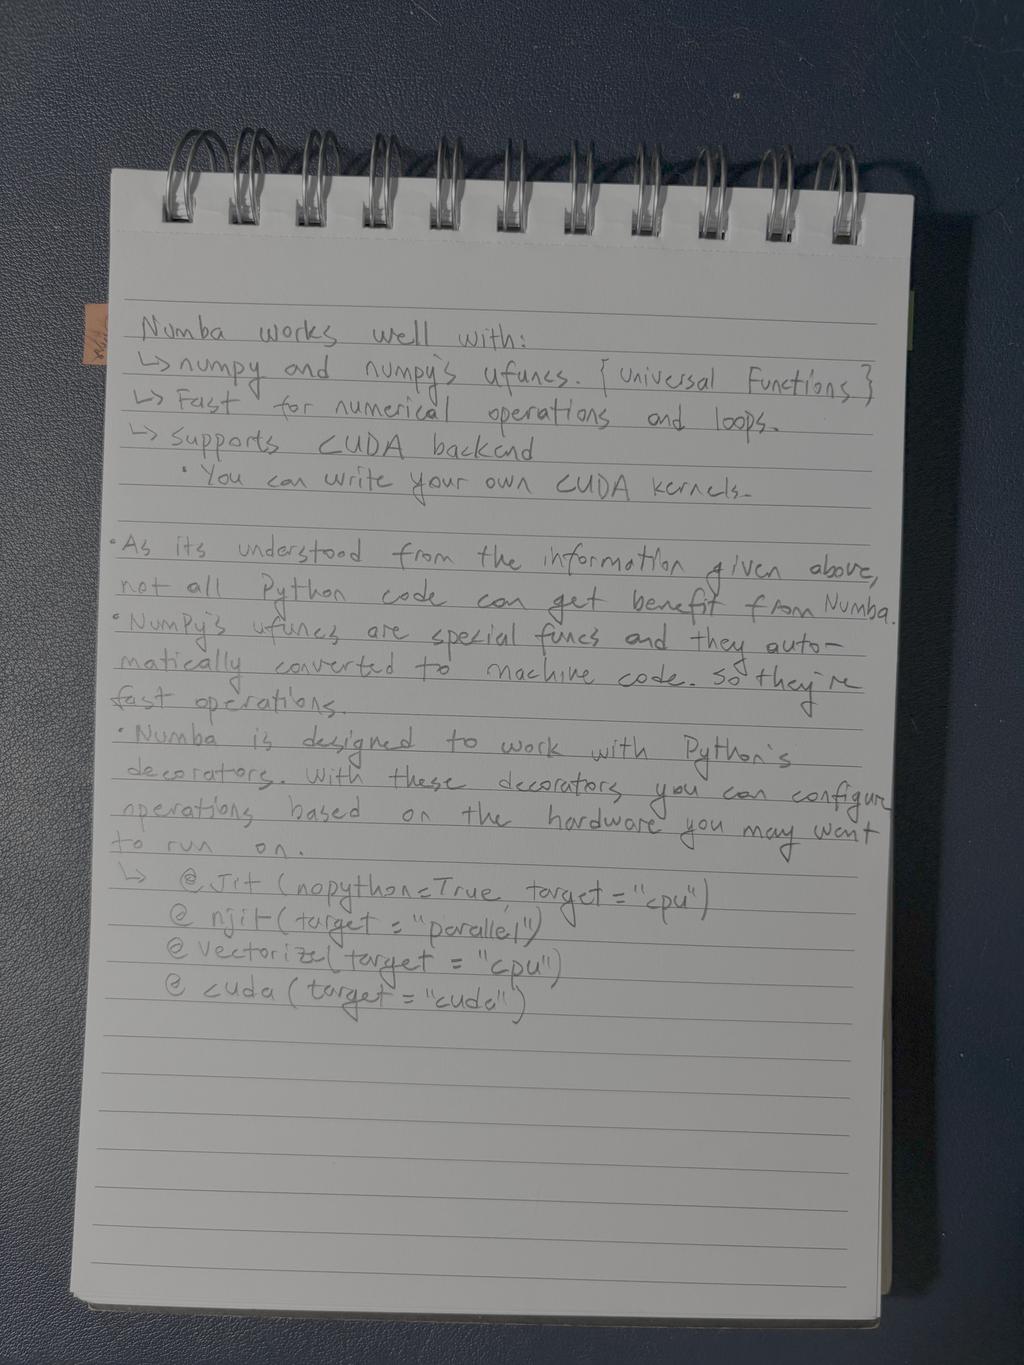 Numba works well with:
↳ numpy and numpy's ufuncs. {Universal Functions}
↳ Fast for numerical operations and loops.
↳ Supports CUDA backend
• You can write your own CUDA kernels.
• As its understood from the information given above,
not all Python code can get benefit from Numba.
• NumPy's ufuncs are special funcs and they auto-
matically converted to machine code. So they're
fast operations.
• Numba is designed to work with Python's
decorators. With these decorators you can configure
operations based on the hardware you may want
to run on.
↳ @Jit (nopython=True, target="cpu")
@njit(target = "parallel")
@vectorize(target = "cpu")
@cuda(target="cuda")